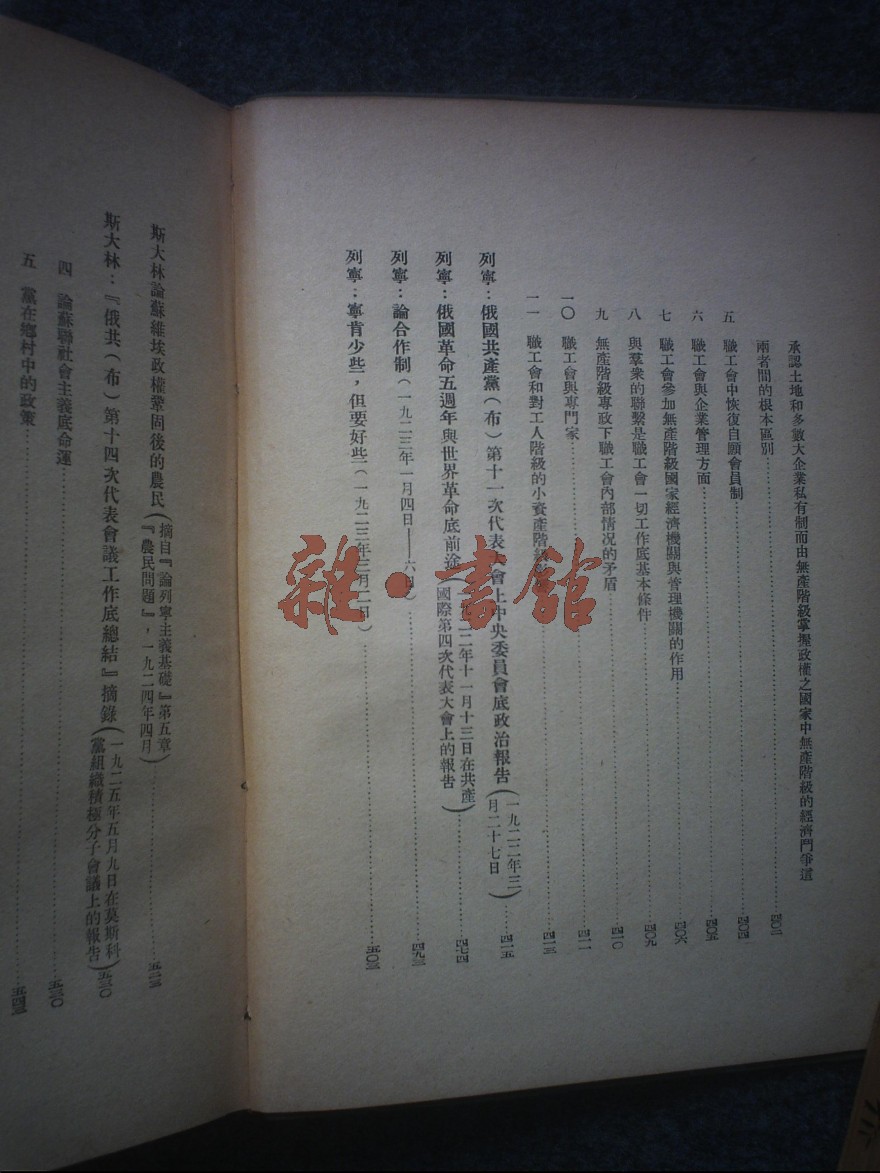 承認土地和多數大企業私有制而由無產階級掌握政權之國家中無產階級的經濟鬥爭這
兩者間的根本區別 四〇二
五 職工會中恢復自願會員制 四〇四
六 職工會與企業管理方面 四〇五
七 職工會參加無產階級國家經濟機關與管理機關的作用 四〇六
八 與羣衆的聯繫是職工會一切工作底基本條件 四〇九
九 無產階級專政下職工會內部情況的矛盾 四一〇
一〇 職工會與專門家 四一一
一一 職工會和對工人階級的小資產階級 四一三
列寧：俄國共產黨（布）第十一次代表大會上中央委員會底政治報告（一九二二年三月二十七日） 四一五
列寧：俄國革命五週年與世界革命底前途（一九二二年十一月十三日在共產國際第四次代表大會上的報告） 四七四
列寧：論合作制（一九二三年一月四日——六日） 四九二
列寧：寧肯少些，但要好些（一九二三年三月二日） 五〇三
斯大林論蘇維埃政權鞏固後的農民（摘自『論列寧主義基礎』第五章『農民問題』，一九二四年四月） 五二三
斯大林：『俄共（布）第十四次代表會議工作底總結』摘錄（一九二五年五月九日在莫斯科黨組織積極分子會議上的報告） 五三〇
四 論蘇聯社會主義底命運 五三〇
五 黨在鄉村中的政策
雜·書館